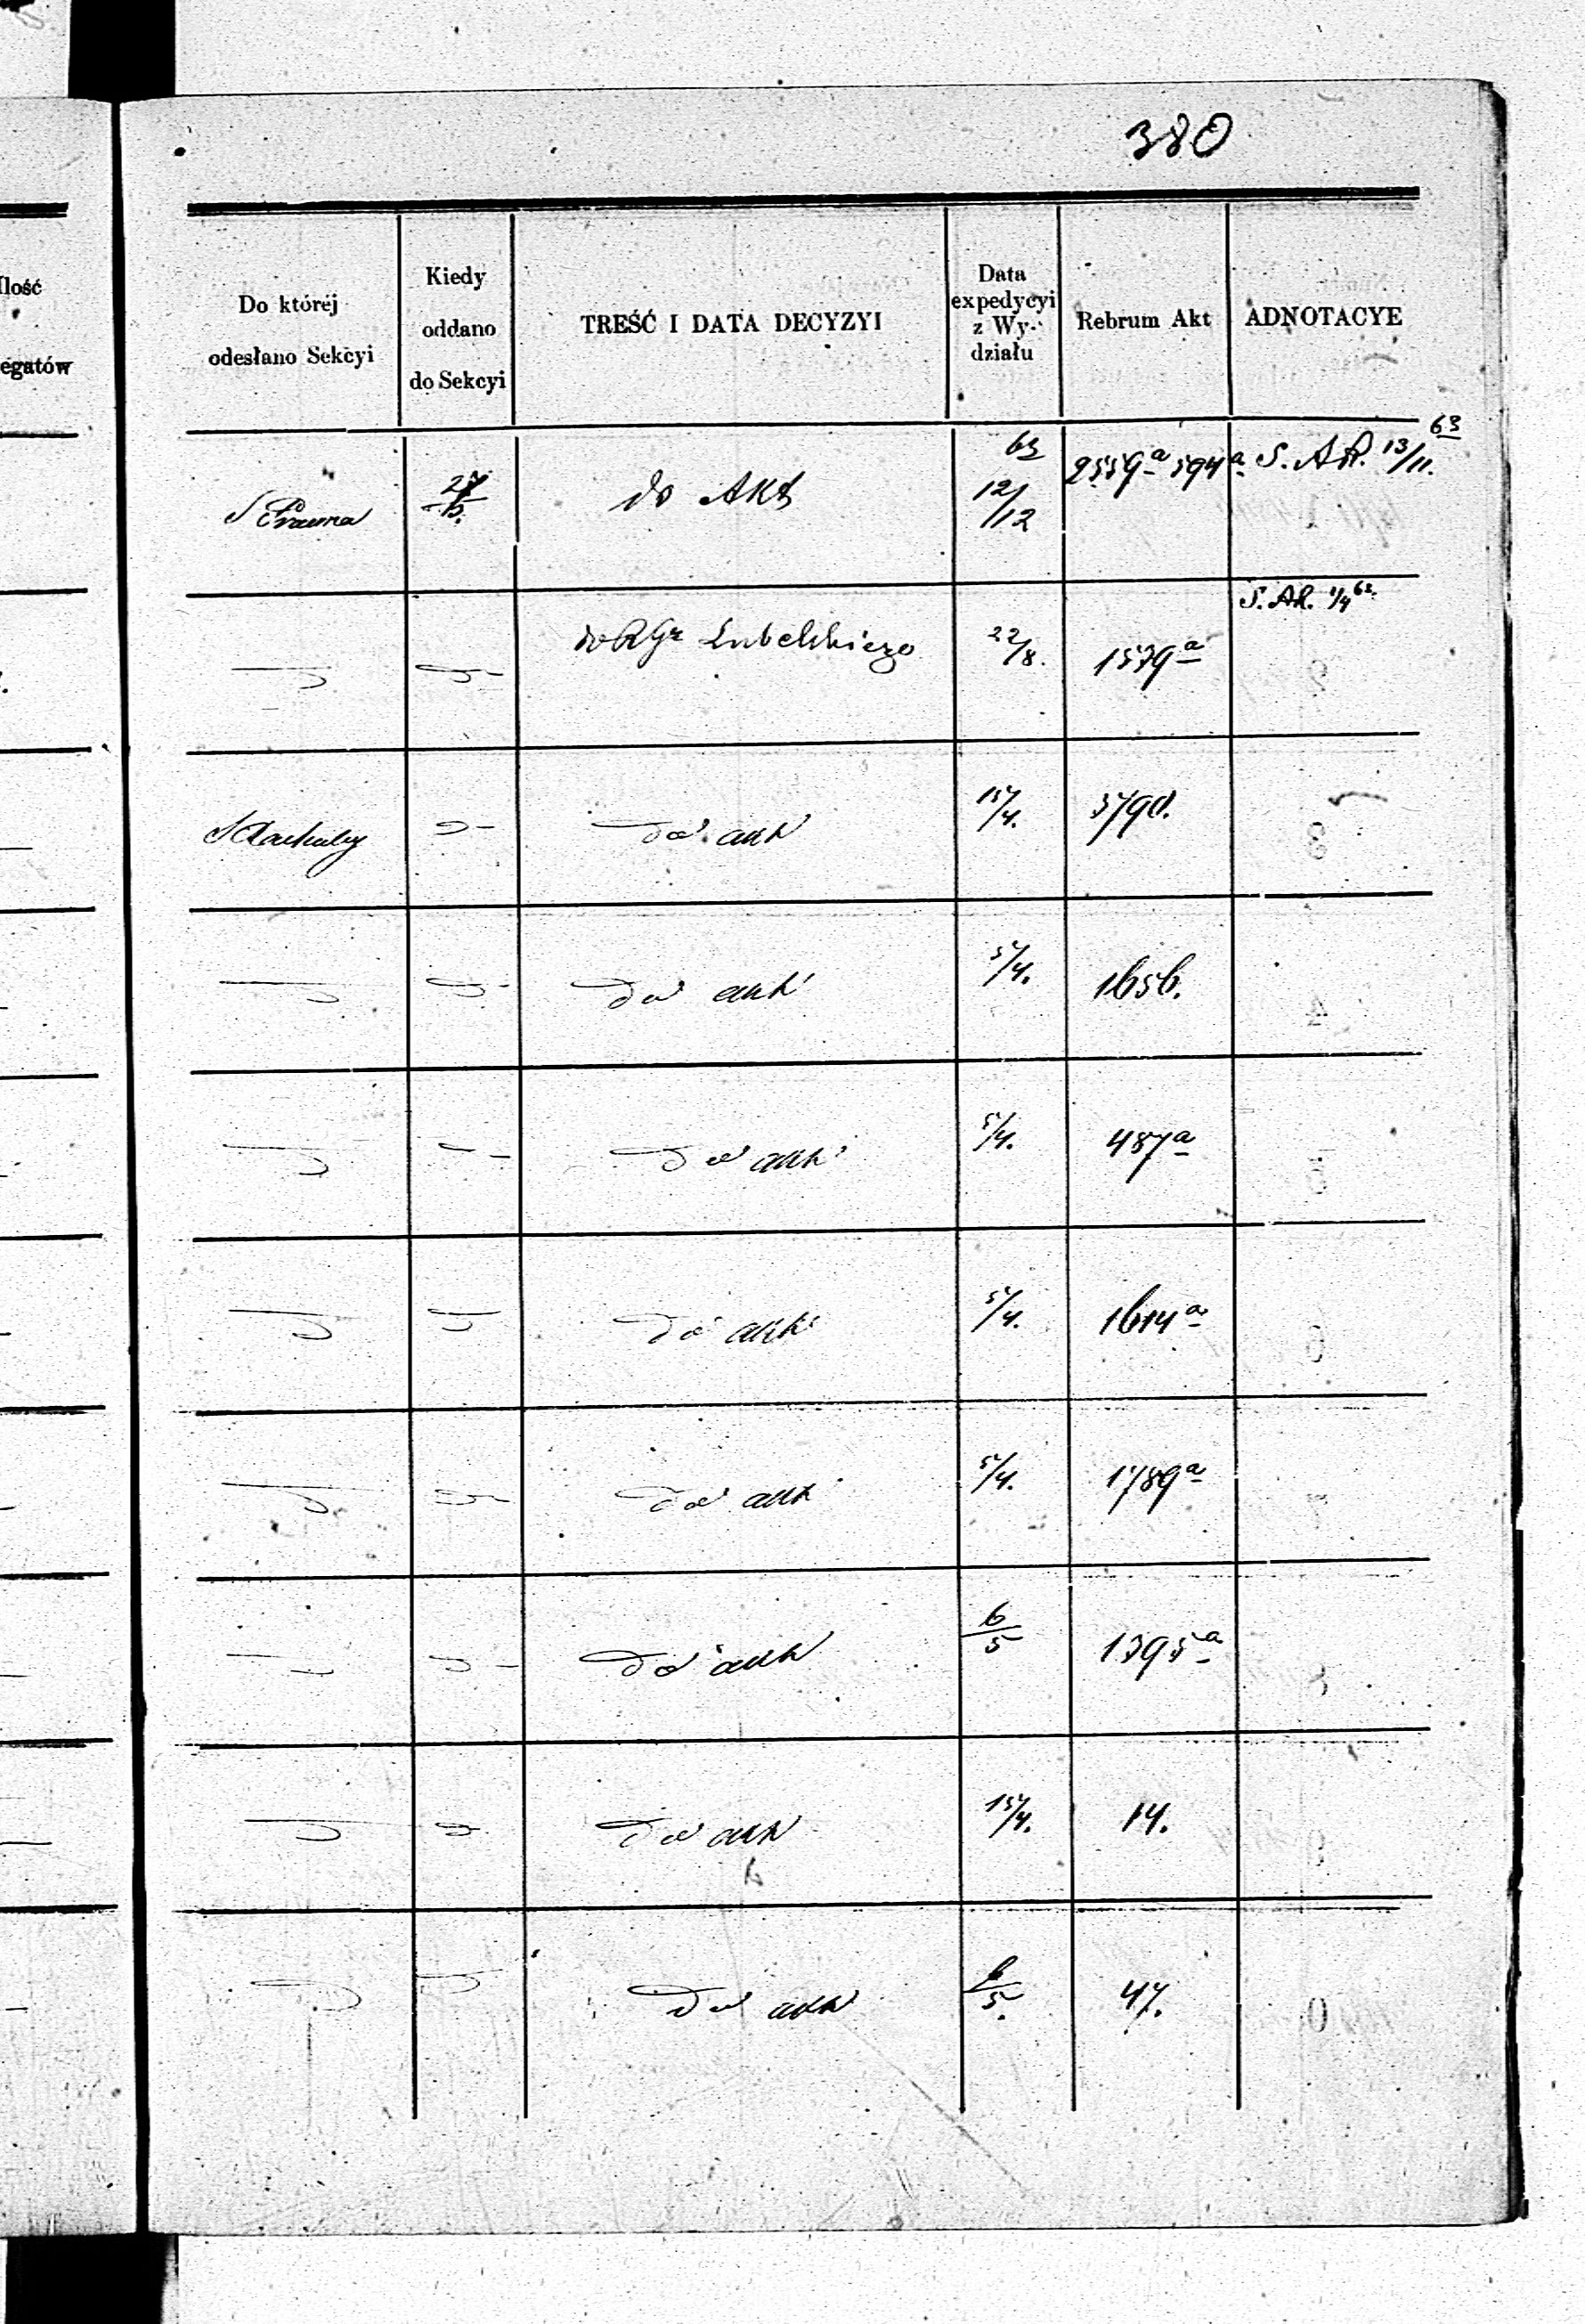 380
Ilość
egatów
Do której
odesłano Sekcyi
Kiedy
oddano
do Sekcyi
TREŚĆ I DATA DECYZYI
Data
expedycyi
z Wy-
działu
Rebrum Akt
ADNOTACYE
S Prawna
do Akt
63
12/12
2559a 594a
S. AR. 13/11. 63
Lubelskiego
22/8.
1579a
S. AR. 1/4 62.
do akt
15/4.
579d.
do akt
5/4.
1656.
do akt
5/4.
487a
do akt
5/4.
1614a
do akt
5/4.
1789a
do akt
6/5
1395a
do akt
15/4.
14.
do akt
6/5.
47.